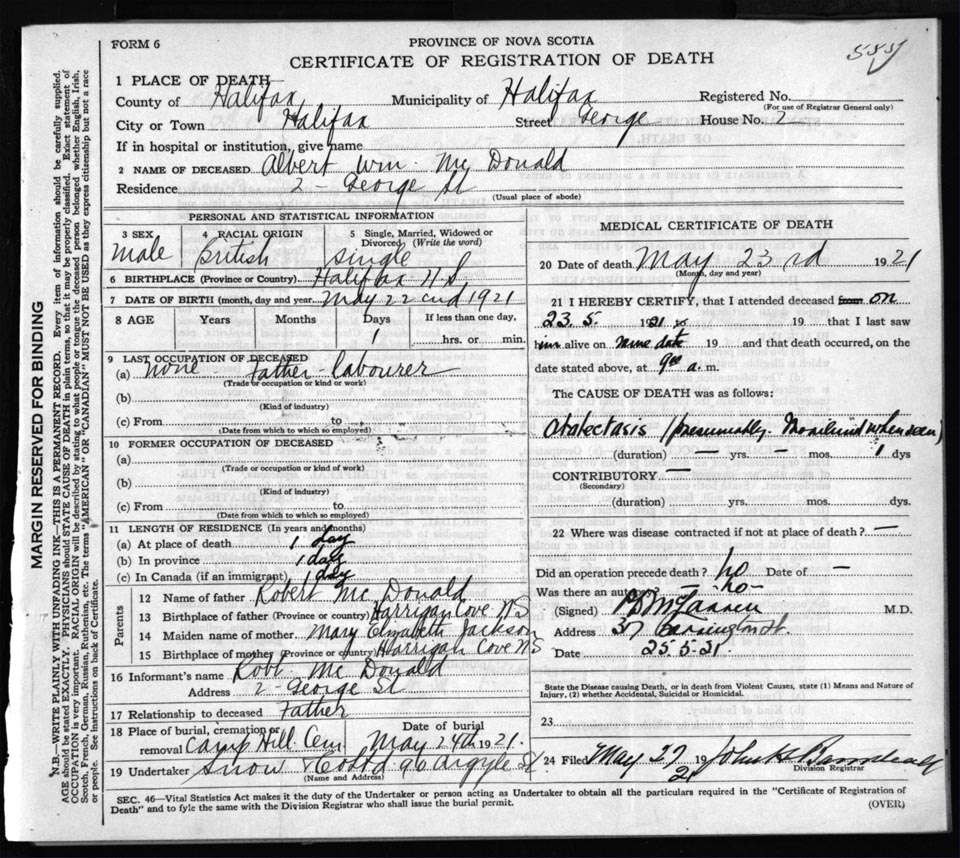 FORM 6
PROVINCE OF NOVA SCOTIA
CERTIFICATE OF REGISTRATION OF DEATH
1 PLACE OF DEATH
County of Halifax Municipality of Halifax Registered No.
(For use of Registrar General only)
City or Town Halifax Street George House No. 2
If in hospital or institution, give name
2 NAME OF DECEASED Albert Wm. Mc Donald
Residence 2 - George St
(Usual place of abode)
PERSONAL AND STATISTICAL INFORMATION
3 SEX Male
4 RACIAL ORIGIN British
5 Single, Married, Widowed or Divorced, (Write the word) Single
6 BIRTHPLACE (Province or Country) Halifax N S.
7 DATE OF BIRTH (month, day and year) May 22 cnd 1921
8 AGE Years Months Days If less than one day,
1 hrs. or min.
9 LAST OCCUPATION OF DECEASED
(a) none - Father - labourer
(Trade or occupation or kind of work)
(b)
(Kind of industry)
(c) From to
(Date from which to which so employed)
10 FORMER OCCUPATION OF DECEASED
(a)
(Trade or occupation or kind of work)
(b)
(Kind of industry)
(c) From to
(Date from which to which so employed)
11 LENGTH OF RESIDENCE (In years and months)
(a) At place of death 1 day
(b) In province 1 day
(c) In Canada (if an immigrant) 1 day
Parents
12 Name of father Robert Mc Donald
13 Birthplace of father (Province or country) Harrigan Cove N S
14 Maiden name of mother Mary Elizabeth Jackson
15 Birthplace of mother (Province or country) Harrigan Cove N S
16 Informant's name Robt. Mc Donald
Address 2 - George St
17 Relationship to deceased Father
18 Place of burial, cremation or removal Camp Hill Cem. Date of burial May 24th 1921.
19 Undertaker Snow & Co Ltd. 90 Argyle St
(Name and Address)
MEDICAL CERTIFICATE OF DEATH
20 Date of death May 23 rd 1921
(Month, day and year)
21 I HEREBY CERTIFY, that I attended deceased from on
23. 5 1921 to 19 that I last saw
him alive on same date 19 and that death occurred, on the
date stated above, at 9 00 a. m.
The CAUSE OF DEATH was as follows:
Atalectasis (presumably. Moribund when seen)
(duration) — yrs. — mos. 1 dys
CONTRIBUTORY —
(Secondary)
(duration) yrs. mos. dys.
22 Where was disease contracted if not at place of death? —
Did an operation precede death? no Date of —
Was there an autopsy? - no -
(Signed) M.D.
Address Barrington St.
Date 25.5.21.
State the Disease causing Death, or in death from Violent Causes, state (1) Means and Nature of Injury, (2) whether Accidental, Suicidal or Homicidal.
23
24 Filed May 27 1921 John H
Division Registrar
SEC. 46—Vital Statistics Act makes it the duty of the Undertaker or person acting as Undertaker to obtain all the particulars required in the "Certificate of Registration of
Death" and to fyle the same with the Division Registrar who shall issue the burial permit.
(OVER)
MARGIN RESERVED FOR BINDING
N.B.—WRITE PLAINLY WITH UNFADING INK—THIS IS A PERMANENT RECORD. Every item of information should be carefully supplied.
AGE should be stated EXACTLY. PHYSICIANS should STATE CAUSE OF DEATH in plain terms, so that it may be properly classified. Exact statement of
OCCUPATION is very important. RACIAL ORIGIN will be described by stating to what people or tongue the deceased person belonged whether English, Irish,
Scotch, French, German, Russian, Ruthenian, etc. The terms "AMERICAN" or "CANADIAN" MUST NOT BE USED as they express citizenship but not a race
or people. See instructions on back of Certificate.